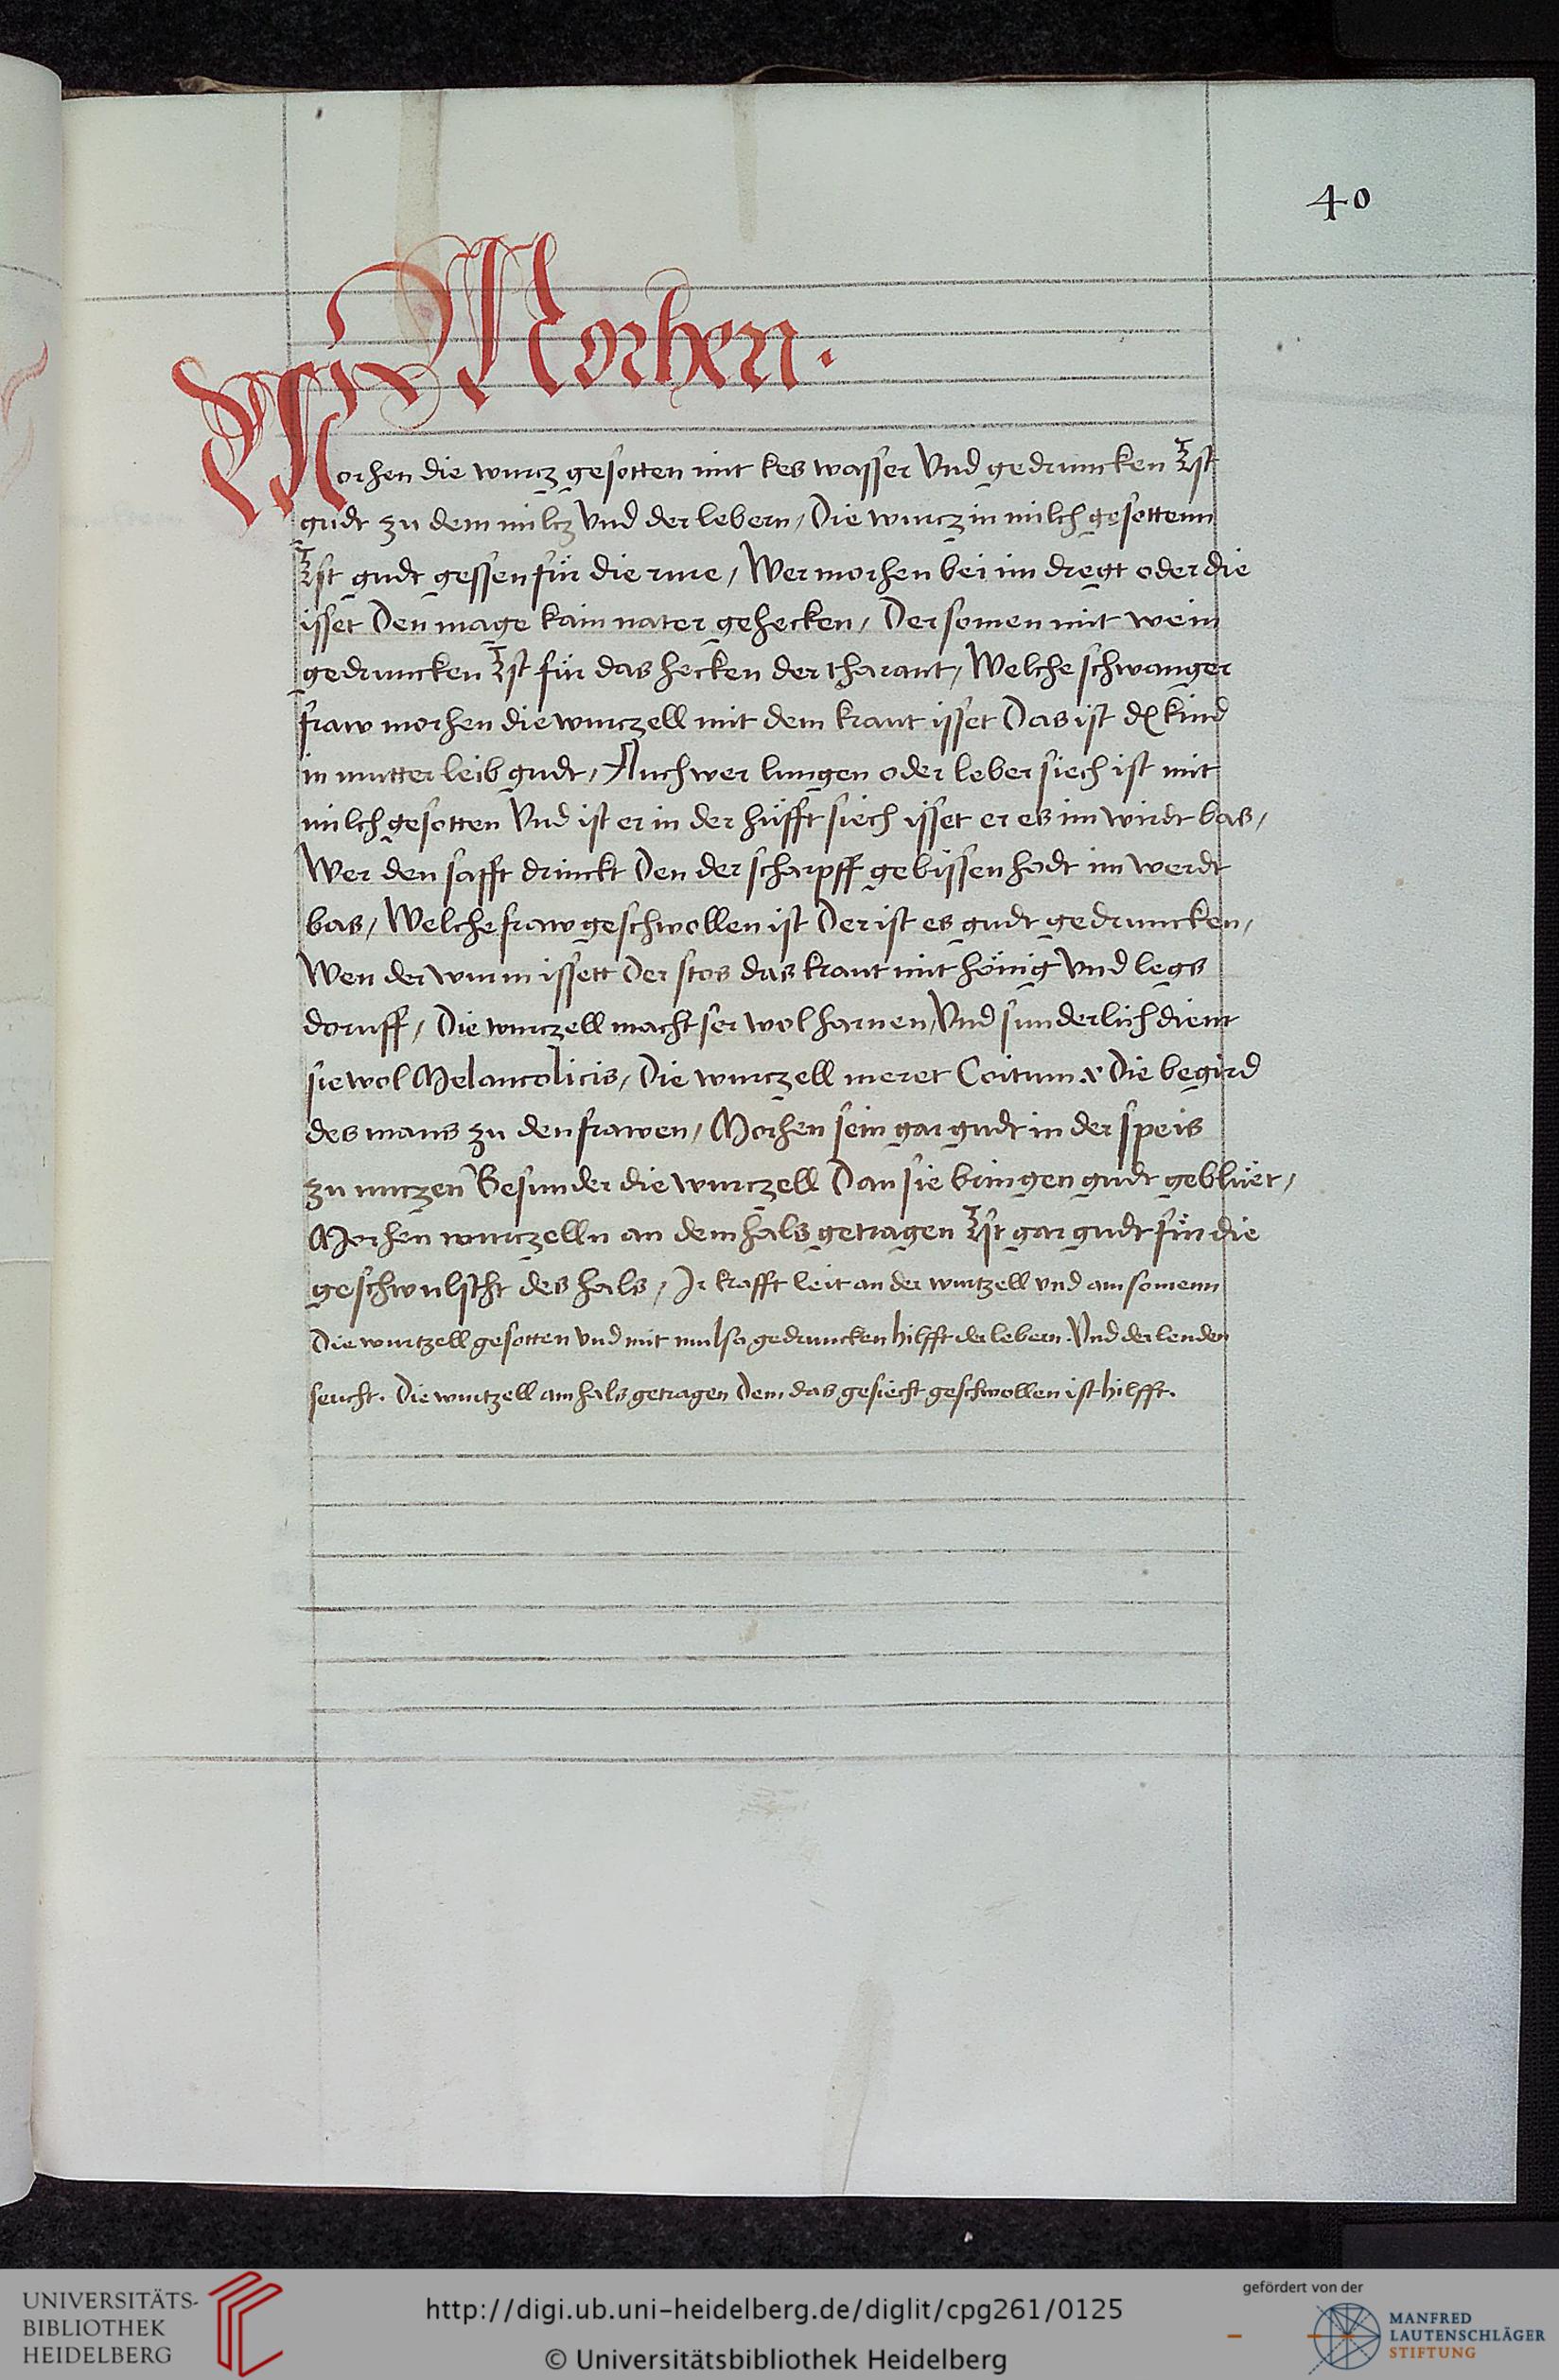 40
Morhen.
Morhen die wurcz gesotten mit kes wasser Vnd gedruncken Ist
gudt zu dem milcz Vnd der lebern / Die wurcz in milch gesottenn
Ist gudt gessen für die rure / Wer morhen bei im dregt oder die
isset Den mage kain nater gehecken / Der somen mit wein
gedruncken Ist für das hecken der tharant / Welche schwanger
fraw morhen die wurczell mit dem kraut isset Das ist dz kind
in mutter leib gudt / Auch wer lungen oder leber siech ist mit
milch gesotten Vnd ist er in der hüfft siech isset er es im wirdt bas /
Wer den safft drinckt Den der scharpff gebissen hodt im werdt
bas / Welche fraw geschwollen ist Der ist es gudt gedruncken /
Wen der wurm issett Der stos das kraut mit hönig Vnd legs
doruff / Die wurczell macht ser wol harnen / Vnd sunderlich dient
sie wol Melancolicis / Die wurczell meret Coitum Die begird
des mans zu den frawen / Morhen sein gar gudt in der speis
zu nuczen Besunder die wurczell Dan sie bringen gudt geblüet /
Morhen wurczelln an dem hals getragen Ist gar gudt für die
geschwulscht des hals / Ir krafft leit an der wurtzell vnd am somenn
Die wurtzell gesotten vnd mit mulsa gedruncken hilfft der lebern. Vnd der lenden
seucht. Die wurtzell am hals getragen Dem das gesiecht geschwollen ist hilfft.
UNIVERSITÄTS-
BIBLIOTHEK
HEIDELBERG
http://digi.ub.uni-heidelberg.de/diglit/cpg261/0125
© Universitätsbibliothek Heidelberg
gefördert von der
MANFRED
LAUTENSCHLÄGER
STIFTUNG